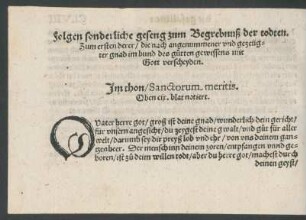 Folgen sonderliche geseng zum Begrebnuß der todten.
Zum ersten derer / die nach angenummener vnd gezeugter
gnad im bund des gutten gewessens mit
Gott verscheyden.
Im thon / Sanctorum meritis.
Oben blat notiert.
O vater herr got / groß ist deine gnad / wunderlich dein gericht /
für vnserm angesicht / du zergest deine gwalt / vnd güt für aller
welt / darumb sey dir preyß lob vnd ehr / von vns deinem
Der mensch inn deinem zoren / empfangen vnnd geboren
/ ist zů deim willen todt / aber du herre got / machest durch
deinen geyst /